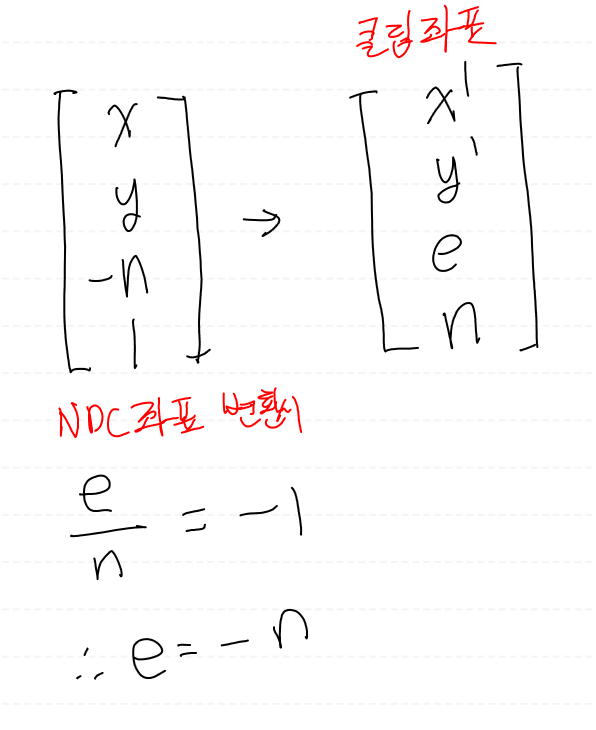 클립좌표
[x y -n 1] → [x' y' e n]
NDC좌표 변환시
e/n = -1
∴ e = -n